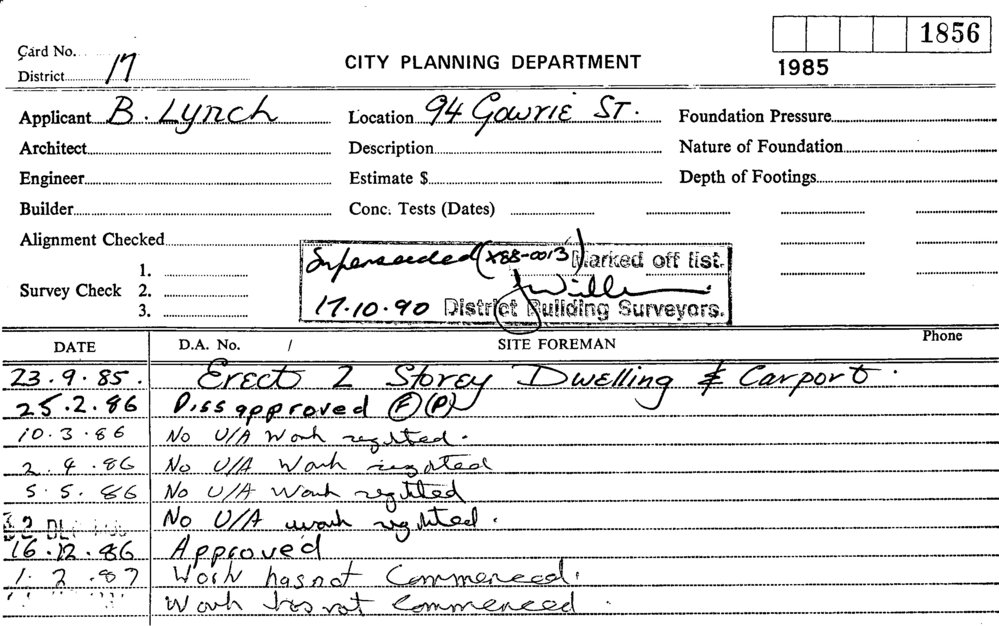 1856
Card No.
CITY PLANNING DEPARTMENT
1985
District 17
Applicant B. Lynch Location 94 Gowrie St. Foundation Pressure
Architect Description Nature of Foundation
Engineer Estimate $ Depth of Footings
Builder Conc. Tests (Dates)
Alignment Checked
Superseeded (X88-0013) Marked off list.
1.
Survey Check 2.
3.
17.10.90 District Building Surveyors.
DATE D.A. No. / SITE FOREMAN Phone
23.9.85. Erect 2 Storey Dwelling & Carport.
25.2.86 Dissapproved (F) (P)
10.3.86 No U/A Work
2.4.86 No U/A Work
5.5.86 No U/A Work
2 DEC No U/A work
16.12.86 Approved
1.2.87 Work has not Commenced.
Work has not commenced.